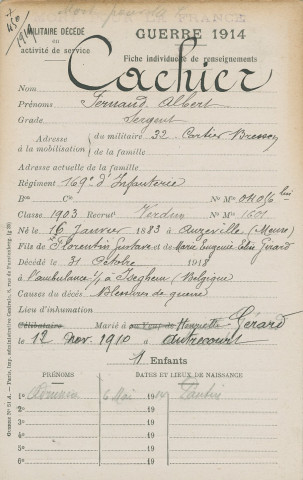 Mort pour la FRANCE
MILITAIRE DÉCÉDÉ
en
activité de service
GUERRE 1914
Fiche individuelle de renseignements
Nom Cachier
Prénoms Fernand Albert
Grade Sergent
Adresse à la mobilisation du militaire 32 Cartier Bresson
de la famille
Adresse actuelle de la famille
Régiment 169e d'Infanterie
Bon Cie No Mle
Classe 1903 Recrut Verdun No Mle 1601
Né le 16 Janvier 1883 à Auzeville (Meuse)
Fils de Florentin Gustave et de Marie Eugénie Gérard
Décédé le 31 Octobre 1918
à l'ambulance 1/ à Iseghem (Belgique)
Causes du décès Blessures de guerre
Lieu d'inhumation
Célibataire Marié à ou Veuf de Henriette Gérard
le 12 Nov. 1910 à Autrecourt
1 Enfants
PRÉNOMS DATES ET LIEUX DE NAISSANCE
1o 6 Mai 19 Pantin
2o 19
3o 19
4o 19
5o 19
6o 19